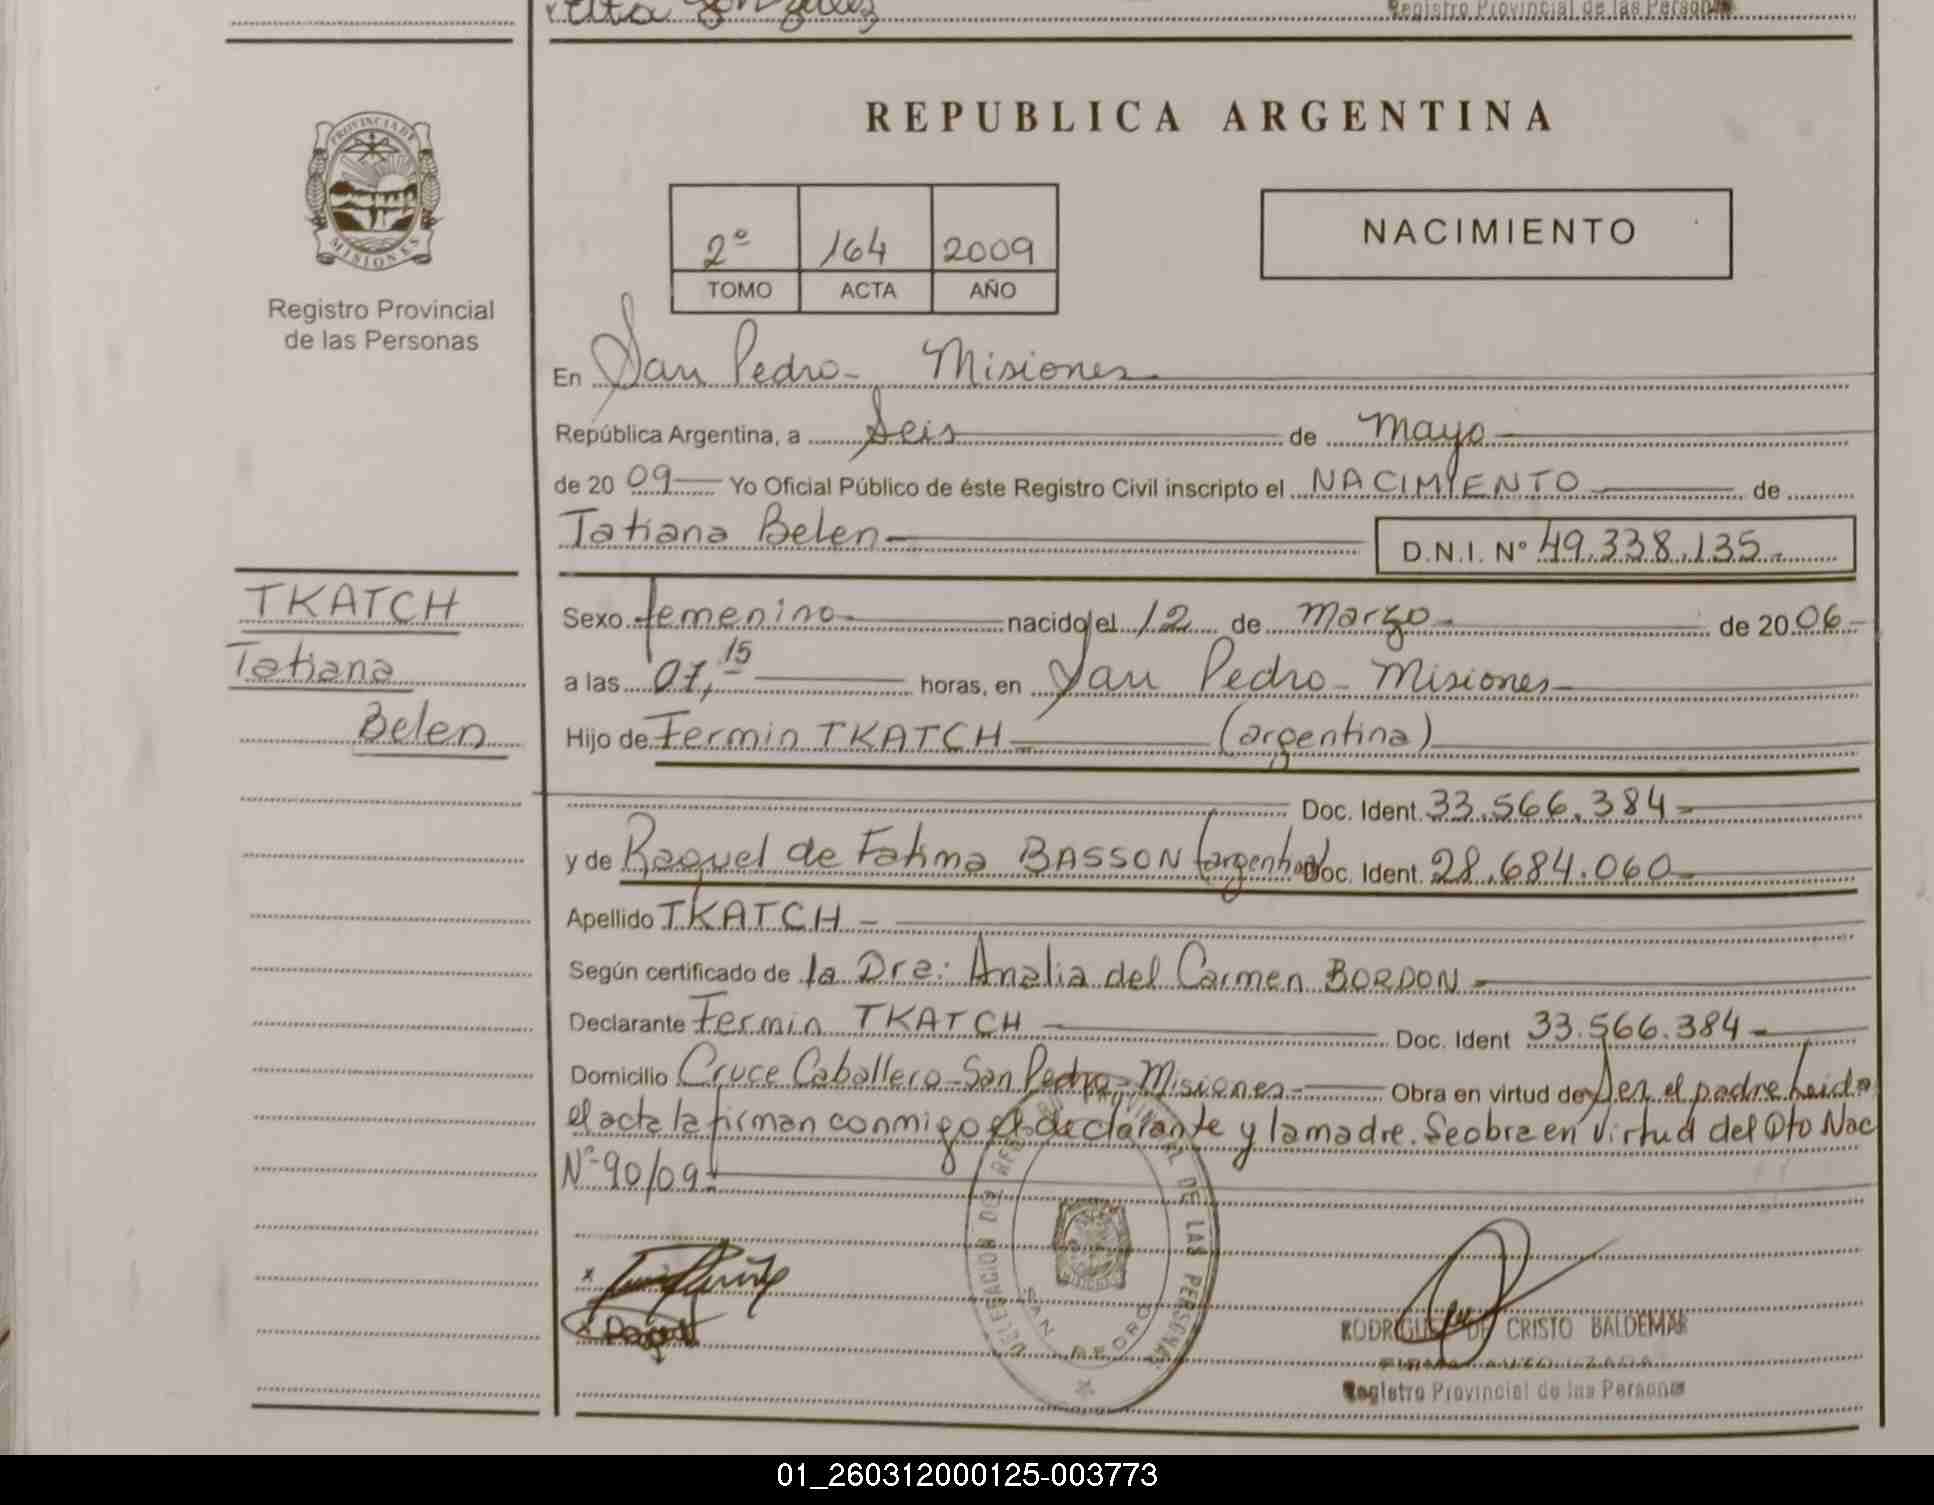 Registro Provincial de las Personas
PROVINCIA DE
MISIONES
Registro Provincial
de las Personas
REPUBLICA ARGENTINA
2º 164 2009
TOMO ACTA AÑO
NACIMIENTO
En San Pedro - Misiones
República Argentina, a Seis de Mayo
de 2009 Yo Oficial Público de éste Registro Civil inscripto el NACIMIENTO de
Tatiana Belen D.N.I. Nº 49.338.135.-
TKATCH
Tatiana
Belen
Sexo femenino nacido el 12 de Marzo de 2006-
a las 07,15 horas, en San Pedro - Misiones
Hijo de Fermin TKATCH (argentina)
Doc. Ident. 33.566.384-
y de Raquel de Fatima BASSON (argentina) Doc. Ident. 28.684.060
Apellido TKATCH -
Según certificado de la Dra: Analia del Carmen BORDON
Declarante Fermin TKATCH Doc. Ident 33.566.384-
Domicilio Cruce Caballero - San Pedro - Misiones Obra en virtud de Ser el padre leida
el acta la firman conmigo el declarante y la madre. Se obra en virtud del Dto Nac
Nº 90/09-
DELEGACION DEL REG. PROVINCIAL DE LAS PERSONAS
SAN PEDRO
RODRIGUEZ DE CRISTO BALDEMAR
FIRMA AUTORIZADA
Registro Provincial de las Personas
01_260312000125-003773